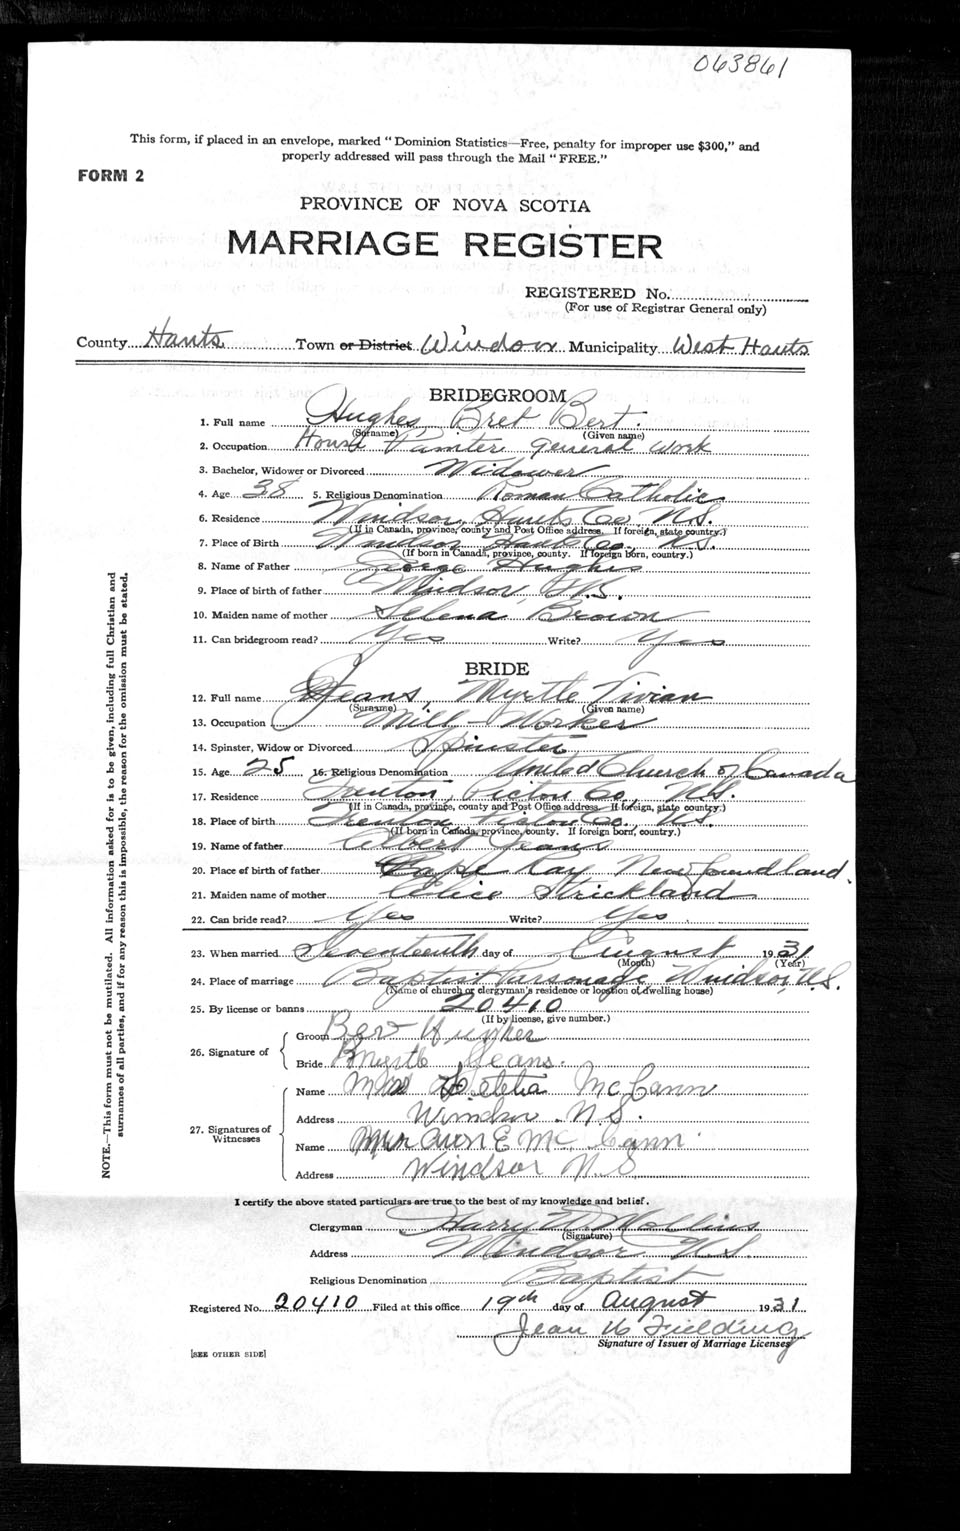 063861
This form, if placed in an envelope, marked "Dominion Statistics—Free, penalty for improper use $300," and
properly addressed will pass through the Mail "FREE."
FORM 2
PROVINCE OF NOVA SCOTIA
MARRIAGE REGISTER
REGISTERED No.
(For use of Registrar General only)
County Hants Town or District Windsor Municipality West Hants
BRIDEGROOM
1. Full name Hughes, Bret Bert.
(Surname) (Given name)
2. Occupation House Painter general work
3. Bachelor, Widower or Divorced Widower
4. Age 38 5. Religious Denomination Roman Catholic
6. Residence Windsor, Hants Co. N.S.
(If in Canada, province, county and Post Office address. If foreign, state country.)
7. Place of Birth Windsor Hants Co. N.S.
(If born in Canada, province, county. If foreign born, country.)
8. Name of Father George Hughes
9. Place of birth of father Windsor, N.S.
10. Maiden name of mother Selena Brown
11. Can bridegroom read? Yes Write? Yes
BRIDE
12. Full name Jeans, Myrtle Vivian
(Surname) (Given name)
13. Occupation Mill-Worker
14. Spinster, Widow or Divorced Spinster
15. Age 25 16. Religious Denomination United Church of Canada
17. Residence Trenton, Pictou Co., N.S.
(If in Canada, province, county and Post Office address. If foreign, state country.)
18. Place of birth Trenton Pictou Co., N.S.
(If born in Canada, province, county. If foreign born, country.)
19. Name of father Albert Jeans
20. Place of birth of father Cape Ray Newfoundland.
21. Maiden name of mother Alice Strickland
22. Can bride read? Yes Write? Yes
23. When married Seventeenth day of August 1931
(Month) (Year)
24. Place of marriage Baptist Parsonage Windsor, N.S.
(Name of church or clergyman's residence or location of dwelling house)
25. By license or banns 20410
(If by license, give number.)
26. Signature of Groom Bert Hughes
Bride Myrtle Jeans.
27. Signatures of Witnesses
Name Mrs Letetia McCann
Address Windsor N.S.
Name Avon E Mc Cann
Address Windsor N S
I certify the above stated particulars are true to the best of my knowledge and belief.
Clergyman Harry
(Signature)
Address Windsor N.S.
Religious Denomination Baptist
Registered No. 20410 Filed at this office 19th day of August 1931
Jean Fielding
Signature of Issuer of Marriage Licenses
[SEE OTHER SIDE]
NOTE.—This form must not be mutilated. All information asked for is to be given, including full Christian and
surnames of all parties, and if for any reason this is impossible, the reason for the omission must be stated.